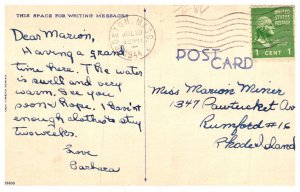 THIS SPACE FOR WRITING MESSAGES
Dear Marion,
Having a grand
time here. The water
is swell and very
warm. See you
soon I hope. I haven't
enough clothes to stay
two weeks.
Love
Barbara
1944
POST CARD
1 CENT 1
Miss Marion Miner
1347 Pawtucket Av
Rumford #16
Rhode Island